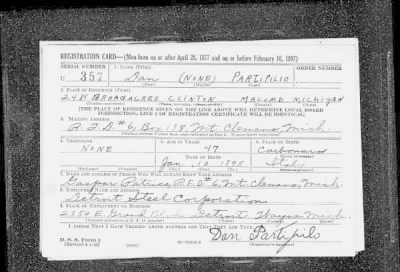 REGISTRATION CARD—(Men born on or after April 28, 1877 and on or before February 16, 1897)
SERIAL NUMBER 1. NAME (Print)
U 357 Dan (NONE) PARTIPILO
(First) (Middle) (Last)
2. PLACE OF RESIDENCE (Print)
2481 BROADACRES CLINTON MACOMB MICHIGAN
[THE PLACE OF RESIDENCE GIVEN ON THE LINE ABOVE WILL DETERMINE LOCAL BOARD
JURISDICTION; LINE 2 OF REGISTRATION CERTIFICATE WILL BE IDENTICAL]
3. MAILING ADDRESS
R.F.D. #6, Box 198, Mt. Clemens, Mich.
4. TELEPHONE 5. AGE IN YEARS 6. PLACE OF BIRTH
NONE 47 Carbonara
DATE OF BIRTH
Jan. 10 1895 Italy
7. NAME AND ADDRESS OF PERSON WHO WILL ALWAYS KNOW YOUR ADDRESS
Gaspar R.F.D. 6, Mt. Clemens, Mich.
8. EMPLOYER'S NAME AND ADDRESS
Detroit Steel Corporation
9. PLACE OF EMPLOYMENT OR BUSINESS
2350 E. Grand Detroit Wayne Mich.
I AFFIRM THAT I HAVE VERIFIED ABOVE ANSWERS AND THAT THEY ARE TRUE.
D. S. S. Form 1
Dan Partipilo